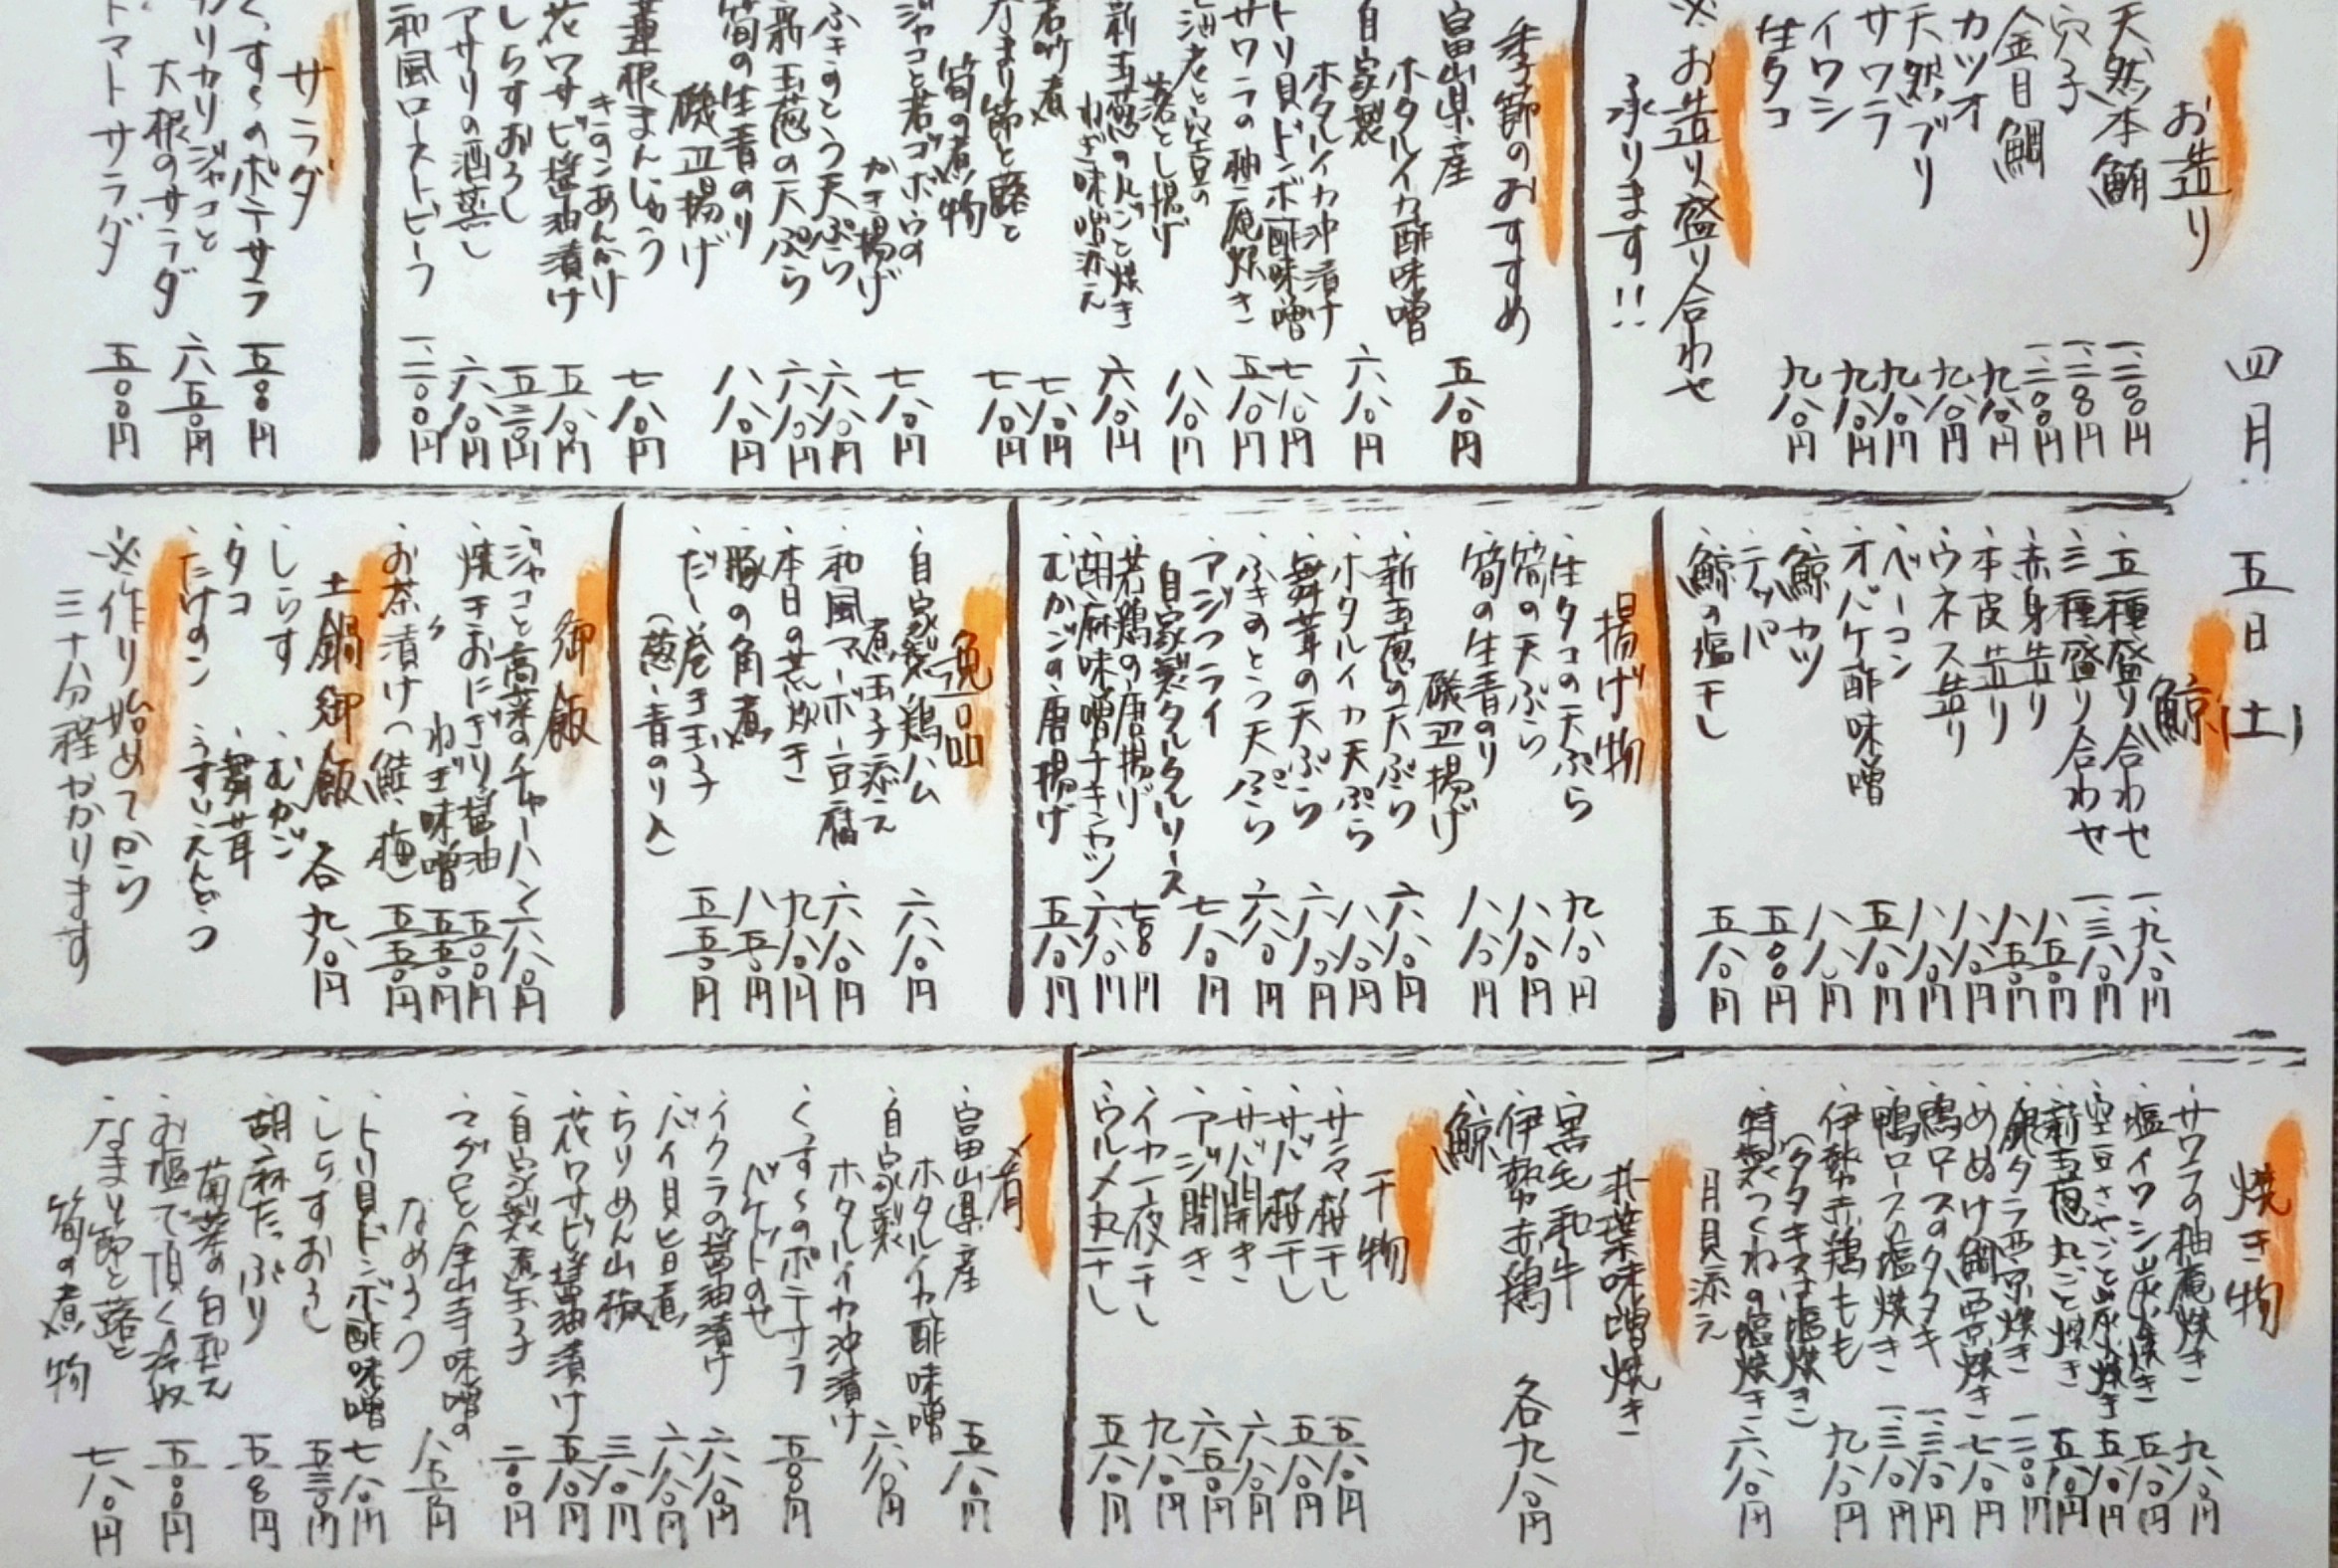 四月 五日(土)
お造り
天然本鮪 一、二八〇円
穴子 一、二八〇円
金目鯛 一、二〇〇円
カツオ 九八〇円
天然ブリ 九八〇円
サワラ 九八〇円
イワシ 九八〇円
生タコ 九八〇円
※お造り盛り合わせ
承ります!!
季節のおすすめ
富山県産
ホタルイカ酢味噌 五八〇円
自家製
ホタルイカ沖漬け 六八〇円
トリ貝ドンボ酢味噌 七八〇円
サワラの柚庵焼き 五八〇円
海老と空豆の
落とし揚げ 八八〇円
新玉葱のレンと焼き
ねぎ味噌添え 六八〇円
若竹煮 七八〇円
なまり節と蕗と
筍の煮物 七八〇円
ジャコと若ゴボウの
かき揚げ 七八〇円
ふきのとう天ぷら 六八〇円
新玉葱の天ぷら 六八〇円
筍の生青のり
磯辺揚げ 八八〇円
蓮根まんじゅう
きのこあんかけ 七八〇円
花ワサビ醤油漬け 五八〇円
しらすおろし 五三〇円
アサリの酒蒸し 六八〇円
和風ローストビーフ 一、二〇〇円
サラダ
くすくのポテサラ 五〇〇円
カリカリジャコと
大根のサラダ 六五〇円
トマトサラダ 五〇〇円
鯨
・五種盛り合わせ 一、九八〇円
・三種盛り合わせ 一、三八〇円
・赤身造り 八五〇円
・本皮造り 八五〇円
・ウネス造り 八八〇円
・ベーコン 八八〇円
・オバケ酢味噌 五八〇円
・鯨カツ 八八〇円
・テッパ 五〇〇円
・鯨の塩干し 五八〇円
揚げ物
・生タコの天ぷら 九八〇円
・筍の天ぷら 八八〇円
・筍の生青のり
磯辺揚げ 八八〇円
・新玉葱の天ぷら 六八〇円
・ホタルイカ天ぷら 八八〇円
・舞茸の天ぷら 六八〇円
・ふきのとう天ぷら 六八〇円
・アジフライ
自家製タルタルソース 七八〇円
・若鶏の唐揚げ 七八〇円
・胡麻味噌チキンカツ 六八〇円
・むかごの唐揚げ 五八〇円
逸品
・自家製鶏ハム
煮玉子添え 六八〇円
・和風マーボー豆腐 六八〇円
・本日の荒炊き 九八〇円
・豚の角煮 八五〇円
・だし巻き玉子
(葱・青のり入) 五五〇円
御飯
・ジャコと高菜のチャーハン 六八〇円
・焼きおにぎり醤油 五〇〇円
〃 ねぎ味噌 五五〇円
・お茶漬け(鮭・梅) 五五〇円
土鍋御飯 各九八〇円
・しらす ・むかご
・タコ ・舞茸
・たけのこ ・うすいえんどう
※作り始めてから
三十分程かかります
焼き物
・サワラの柚庵焼き 九八〇円
・塩イワシ炭火焼き 五八〇円
・空豆さやごと炭火焼き 五八〇円
・新玉葱丸ごと焼き 五八〇円
・銀タラ西京焼き 一、二〇〇円
・めぬけ鯛西京焼き 七八〇円
・鴨ロースのタタキ 一、三八〇円
・鴨ロースの塩焼き 一、三八〇円
・伊勢赤鶏もも
(タタキ又は塩焼き) 九八〇円
・特製つくねの塩焼き 六八〇円
月見添え
朴葉味噌焼き
・黒毛和牛
・伊勢赤鶏 各九八〇円
・鯨
干物
・サンマ桜干し 五八〇円
・サバ桜干し 五八〇円
・サバ開き 六八〇円
・アジ開き 六五〇円
・イカ一夜干し 九八〇円
・ウルメ丸干し 五八〇円
肴
・富山県産
ホタルイカ酢味噌 五八〇円
・自家製
ホタルイカ沖漬け 六八〇円
・くすくのポテサラ
バケットのせ 五〇〇円
・イクラの醤油漬け 六八〇円
・バイ貝旨煮 六八〇円
・ちりめん山椒 三八〇円
・花ワサビ醤油漬け 五八〇円
・自家製煮玉子 二〇〇円
・マグロと金山寺味噌の
なめろう 八五〇円
・トリ貝ドンボ酢味噌 七八〇円
・しらすおろし 五三〇円
・胡麻たっぷり
菊菜の白和え 五八〇円
・お塩で頂く冷奴 五〇〇円
・なまり節と蕗と
筍の煮物 七八〇円